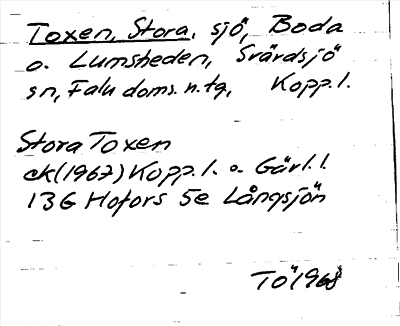 Toxen, Stora, sjö, Boda
o. Lumsheden, Svärdsjö
sn, Falu doms. n. tg, Kopp. l.
Stora Toxen
ek (1967) Kopp. l. o. Gävl. l.
13G Hofors 5e Långsjön
TÖ 1968